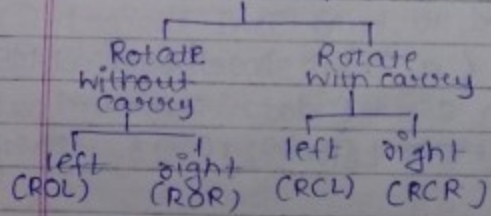 Rotate
without
carry
Rotate
with carry
left
(ROL)
right
(ROR)
left
(RCL)
right
(RCR)